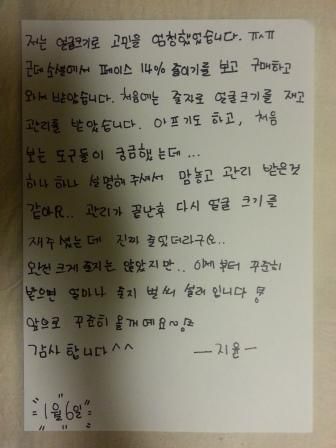 저는 얼굴크기로 고민을 엄청했었습니다. ㅠㅅㅠ
근데 소셜에서 페이스 14% 줄이기를 보고 구매하고
와서 받았습니다. 처음에는 줄자로 얼굴크기를 재고
관리를 받았습니다. 아프기도 하고, 처음
보는 도구들이 궁금했는데...
하나 하나 설명해 주셔서 맘놓고 관리 받은것
같아요.. 관리가 끝난후 다시 얼굴 크기를
재주셨는데 진짜 줄었더라구요..
완전 크게 줄지는 않았지만.. 이제부터 꾸준히
받으면 얼마나 줄지 벌써 설레입니다
앞으로 꾸준히 올게예요~
감사합니다^^ ㅡ지윤ㅡ
"1월 6일"